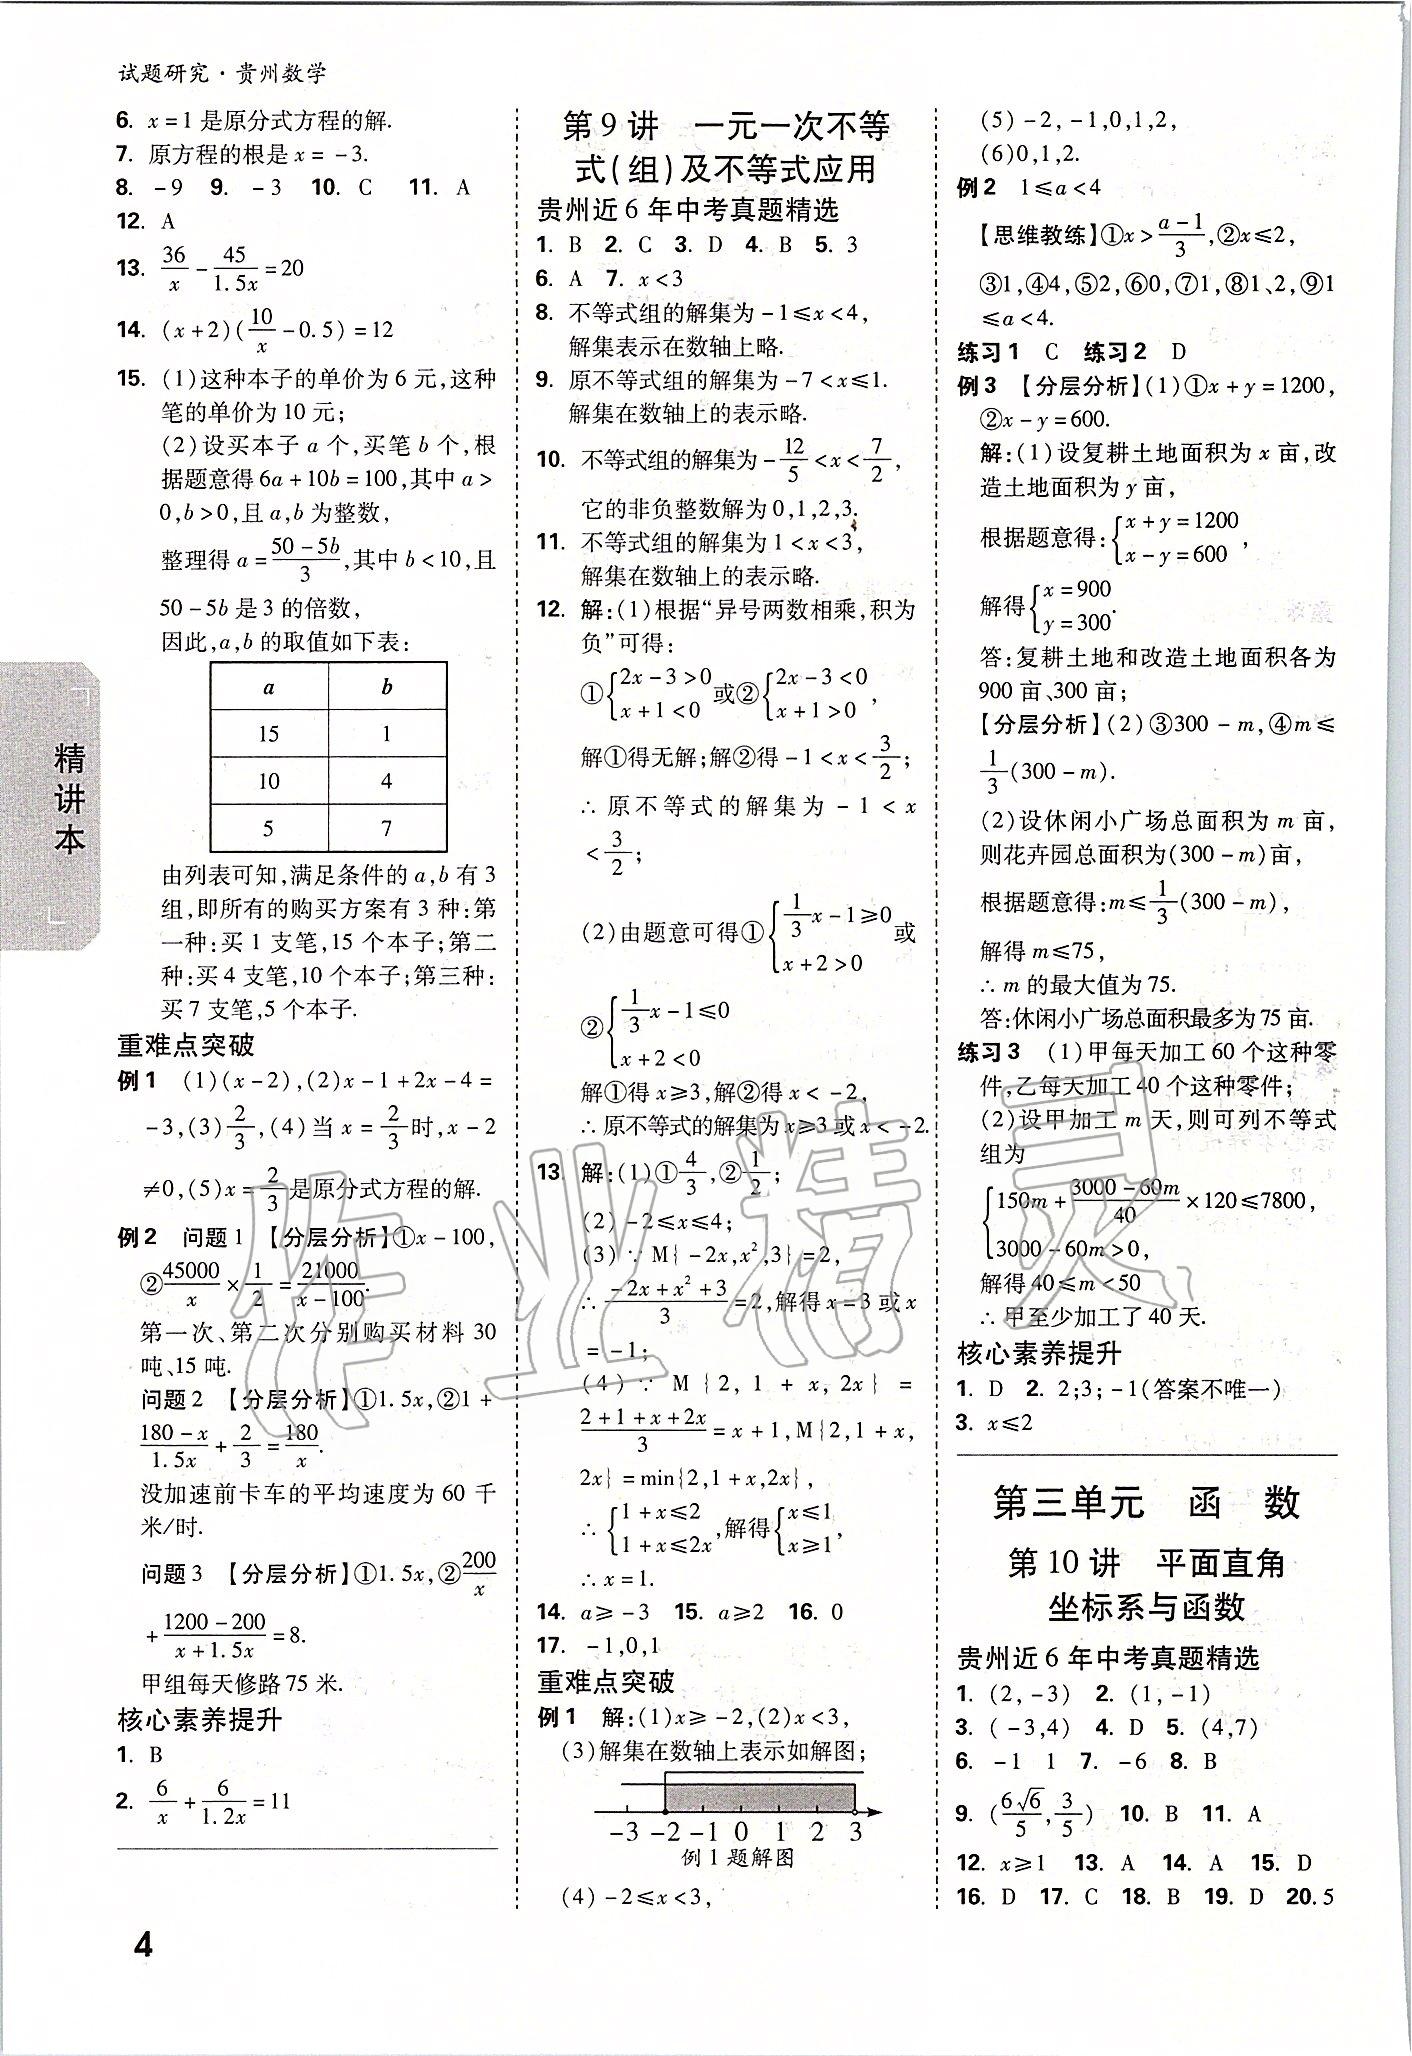 试题研究·贵州数学
6. x=1是原分式方程的解.
7. 原方程的根是x=-3.
8. -9 9. -3 10. C 11. A
12. A
13. 36/x - 45/1.5x = 20
14. (x+2)(10/x - 0.5)=12
15. (1)这种本子的单价为6元,这种
笔的单价为10元;
(2)设买本子a个,买笔b个,根
据题意得6a+10b=100,其中a>
0,b>0,且a,b为整数,
整理得a=(50-5b)/3,其中b<10,且
50-5b是3的倍数,
因此,a,b的取值如下表:
a b
15 1
10 4
5 7
由列表可知,满足条件的a,b有3
组,即所有的购买方案有3种:第
一种:买1支笔,15个本子;第二
种:买4支笔,10个本子;第三种:
买7支笔,5个本子.
重难点突破
例1 (1)(x-2),(2)x-1+2x-4=
-3,(3)2/3,(4)当x=2/3时,x-2
≠0,(5)x=2/3是原分式方程的解.
例2 问题1 【分层分析】①x-100,
②45000/x × 1/2 = 21000/(x-100).
第一次、第二次分别购买材料30
吨、15吨.
问题2 【分层分析】①1.5x,②1+
(180-x)/1.5x + 2/3 = 180/x.
没加速前卡车的平均速度为60千
米/时.
问题3 【分层分析】①1.5x,②200/x
+(1200-200)/(x+1.5x)=8.
甲组每天修路75米.
核心素养提升
1. B
2. 6/x + 6/1.2x = 11
精讲本
4
第9讲 一元一次不等
式(组)及不等式应用
贵州近6年中考真题精选
1. B 2. C 3. D 4. B 5. 3
6. A 7. x<3
8. 不等式组的解集为-1≤x<4,
解集表示在数轴上略.
9. 原不等式组的解集为-7<x≤1.
解集在数轴上的表示略.
10. 不等式组的解集为-12/5<x<7/2,
它的非负整数解为0,1,2,3.
11. 不等式组的解集为1<x<3,
解集在数轴上的表示略.
12. 解:(1)根据“异号两数相乘,积为
负”可得:
①{2x-3>0 x+1<0 或②{2x-3<0 x+1>0,
解①得无解;解②得-1<x<3/2;
∴原不等式的解集为-1<x
<3/2;
(2)由题意可得①{1/3x-1≥0 x+2>0 或
②{1/3x-1≤0 x+2<0
解①得x≥3,解②得x<-2,
∴原不等式的解集为x≥3或x<-2.
13. 解:(1)①4/3,②1/2;
(2)-2≤x≤4;
(3)∵M{-2x,x²,3}=2,
∴(-2x+x²+3)/3=2,解得x=3或x
=-1;
(4)∵M{2,1+x,2x}=
(2+1+x+2x)/3=x+1,M{2,1+x,
2x}=min{2,1+x,2x},
∴{1+x≤2 1+x≤2x,解得{x≤1 x≥1,
∴x=1.
14. a≥-3 15. a≥2 16. 0
17. -1,0,1
重难点突破
例1 解:(1)x≥-2,(2)x<3,
(3)解集在数轴上表示如解图;
-3 -2 -1 0 1 2 3
例1题解图
(4)-2≤x<3,
(5)-2,-1,0,1,2,
(6)0,1,2.
例2 1≤a<4
【思维教练】①x>(a-1)/3,②x≤2,
③1,④4,⑤2,⑥0,⑦1,⑧1、2,⑨1
≤a<4.
练习1 C 练习2 D
例3 【分层分析】(1)①x+y=1200,
②x-y=600.
解:(1)设复耕土地面积为x亩,改
造土地面积为y亩,
根据题意得:{x+y=1200 x-y=600,
解得{x=900 y=300.
答:复耕土地和改造土地面积各为
900亩、300亩;
【分层分析】(2)③300-m,④m≤
1/3(300-m).
(2)设休闲小广场总面积为m亩,
则花卉园总面积为(300-m)亩,
根据题意得:m≤1/3(300-m),
解得m≤75,
∴m的最大值为75.
答:休闲小广场总面积最多为75亩.
练习3 (1)甲每天加工60个这种零
件,乙每天加工40个这种零件;
(2)设甲加工m天,则可列不等式
组为
{150m+(3000-60m)/40×120≤7800,
3000-60m>0,
解得40≤m<50
∴甲至少加工了40天.
核心素养提升
1. D 2. 2;3;-1(答案不唯一)
3. x≤2
第三单元 函 数
第10讲 平面直角
坐标系与函数
贵州近6年中考真题精选
1. (2,-3) 2. (1,-1)
3. (-3,4) 4. D 5. (4,7)
6. -1 1 7. -6 8. B
9. (6√6/5,3/5) 10. B 11. A
12. x≥1 13. A 14. A 15. D
16. D 17. C 18. B 19. D 20. 5
作业精灵